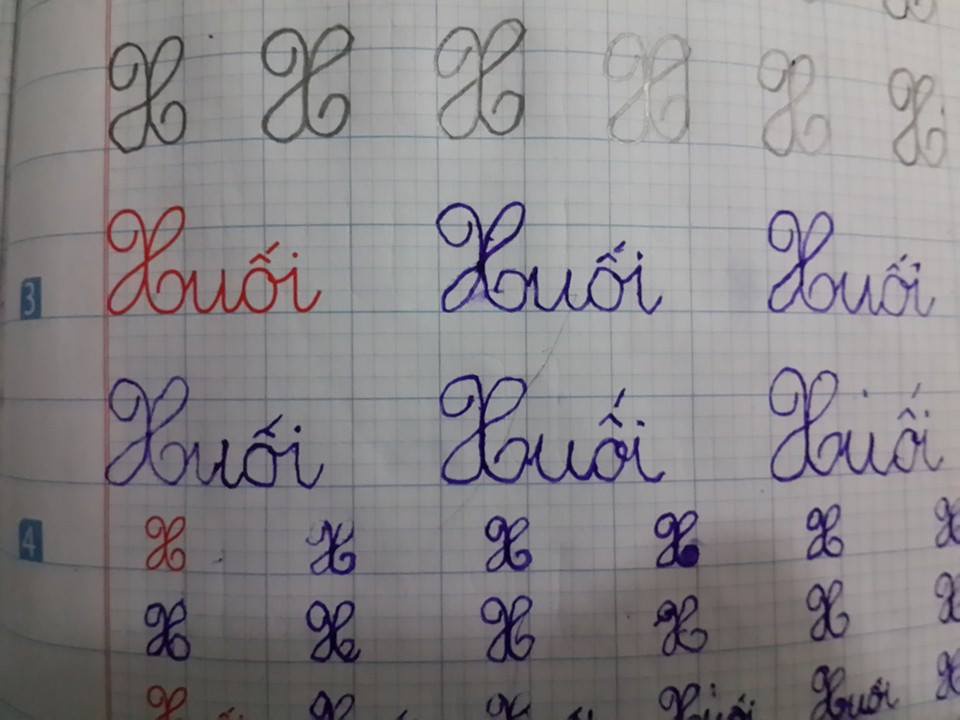 X X X X X X
3 Xuối Xuối Xuối
Xuối Xuối Xuối
4 X X X X X X
X X X X X X
X Xuối Xuối X